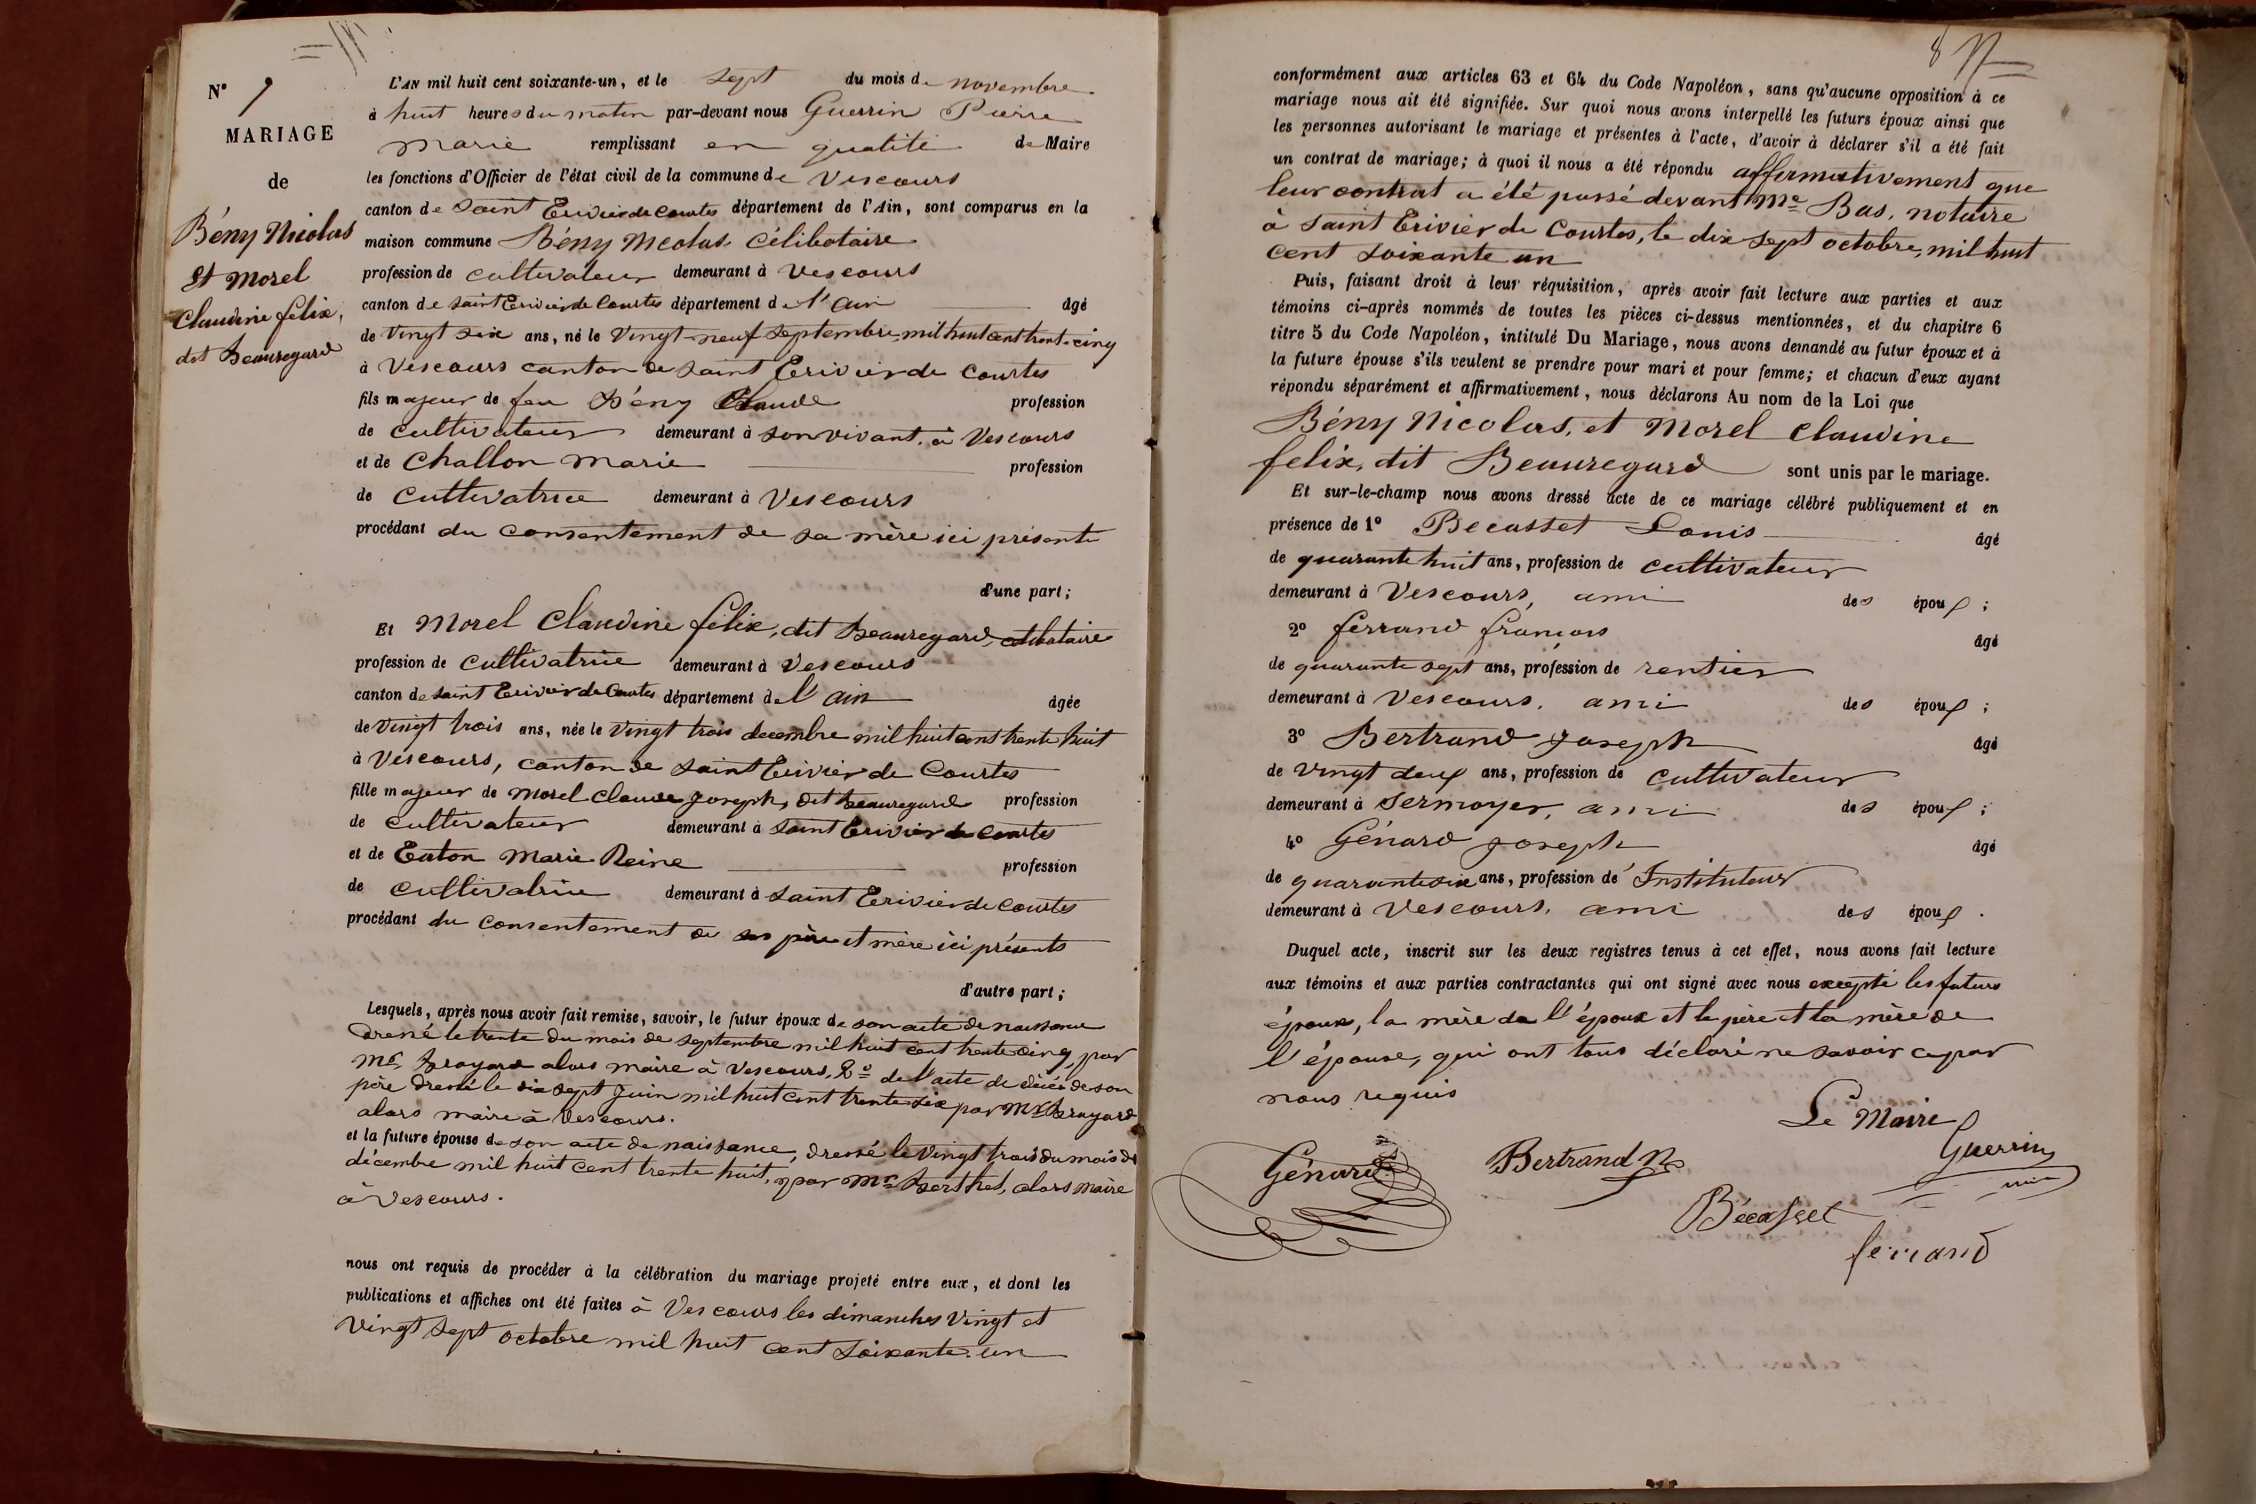 N° 9
MARIAGE
de
Bény Nicolas
Et Morel
Claudine felix,
dit Beauregard
L'AN mil huit cent soixante-un, et le sept du mois de novembre
à huit heures du matin par-devant nous Guerrin Pierre
Marie remplissant en qualité de Maire
les fonctions d'Officier de l'état civil de la commune de Vescours
canton de Saint Trivier de Courtes département de l'Ain, sont comparus en la
maison commune Bény Nicolas Célibataire
profession de cultivateur demeurant à Vescours
canton de Saint Trivier de Courtes département de l'ain âgé
de Vingt six ans, né le Vingt-neuf Septembre mil huit cent trente-cinq
à Vescours canton de Saint Trivier de Courtes
fils majeur de feu Bény Claude profession
de cultivateur demeurant à son vivant à Vescours
et de Challon Marie profession
de Cultivatrice demeurant à Vescours
procédant du consentement de sa mère ici présente
d'une part;
Et Morel Claudine félix, dit Beauregard, célibataire
profession de Cultivatrice demeurant à Vescours
canton de Saint Trivier de Courtes département de l'ain âgée
de Vingt trois ans, née le Vingt trois decembre mil huit cent trente huit
à Vescours, canton de Saint Trivier de Courtes
fille majeur de Morel Claude Joseph, dit Beauregard profession
de cultivateur demeurant à Saint Trivier de Courtes
et de Marie Reine profession
de cultivatrice demeurant à Saint Trivier de Courtes
procédant du consentement de ses père et mère ici présents
d'autre part;
Lesquels, après nous avoir fait remise, savoir, le futur époux de son acte de naissance
dressé le trente du mois de septembre mil huit cent trente cinq, par
Mr, Broyard alors maire à Vescours, 2° de l'acte de décès de son
père dressé le sept Juin mil huit cent trente six par Mr Broyard
alors maire à Vescours.
et la future épouse de son acte de naissance, dressé le Vingt trois du mois de
décembre mil huit cent trente huit, par Mr Berthet, alors Maire
à Vescours.
nous ont requis de procéder à la célébration du mariage projeté entre eux, et dont les
publications et affiches ont été faites à Vescours les dimanches Vingt et
Vingt sept octobre mil huit cent Soixante-un
8
conformément aux articles 63 et 64 du Code Napoléon, sans qu'aucune opposition à ce
mariage nous ait été signifiée. Sur quoi nous avons interpellé les futurs époux ainsi que
les personnes autorisant le mariage et présentes à l'acte, d'avoir à déclarer s'il a été fait
un contrat de mariage; à quoi il nous a été répondu affirmativement que
leur contrat a été passé devant Me Bas, notaire
à Saint Trivier de Courtes, le dix sept octobre, mil huit
cent soixante un
Puis, faisant droit à leur réquisition, après avoir fait lecture aux parties et aux
témoins ci-après nommés de toutes les pièces ci-dessus mentionnées, et du chapitre 6
titre 5 du Code Napoléon, intitulé Du Mariage, nous avons demandé au futur époux et à
la future épouse s'ils veulent se prendre pour mari et pour femme; et chacun d'eux ayant
répondu séparément et affirmativement, nous déclarons Au nom de la Loi que
Bény Nicolas, et Morel Claudine
felix, dit Beauregard sont unis par le mariage.
Et sur-le-champ nous avons dressé acte de ce mariage célébré publiquement et en
présence de 1° Becasset Louis âgé
de quarante huit ans, profession de cultivateur
demeurant à Vescours, ami des époux;
2° ferrand françois âgé
de quarante sept ans, profession de rentier
demeurant à Vescours, ami des époux;
3° Bertrand Joseph âgé
de Vingt deux ans, profession de cultivateur
demeurant à Sermoyer, ami des époux;
4° Génard Joseph âgé
de quarante six ans, profession d'Instituteur
demeurant à Vescours, ami des époux.
Duquel acte, inscrit sur les deux registres tenus à cet effet, nous avons fait lecture
aux témoins et aux parties contractantes qui ont signé avec nous excepté les futurs
époux, la mère de l'époux et le père et la mère de
l'épouse, qui ont tous déclaré ne savoir ce par
nous requis
Le Maire
Génard Bertrand Guerrin
Bécasset
ferrand